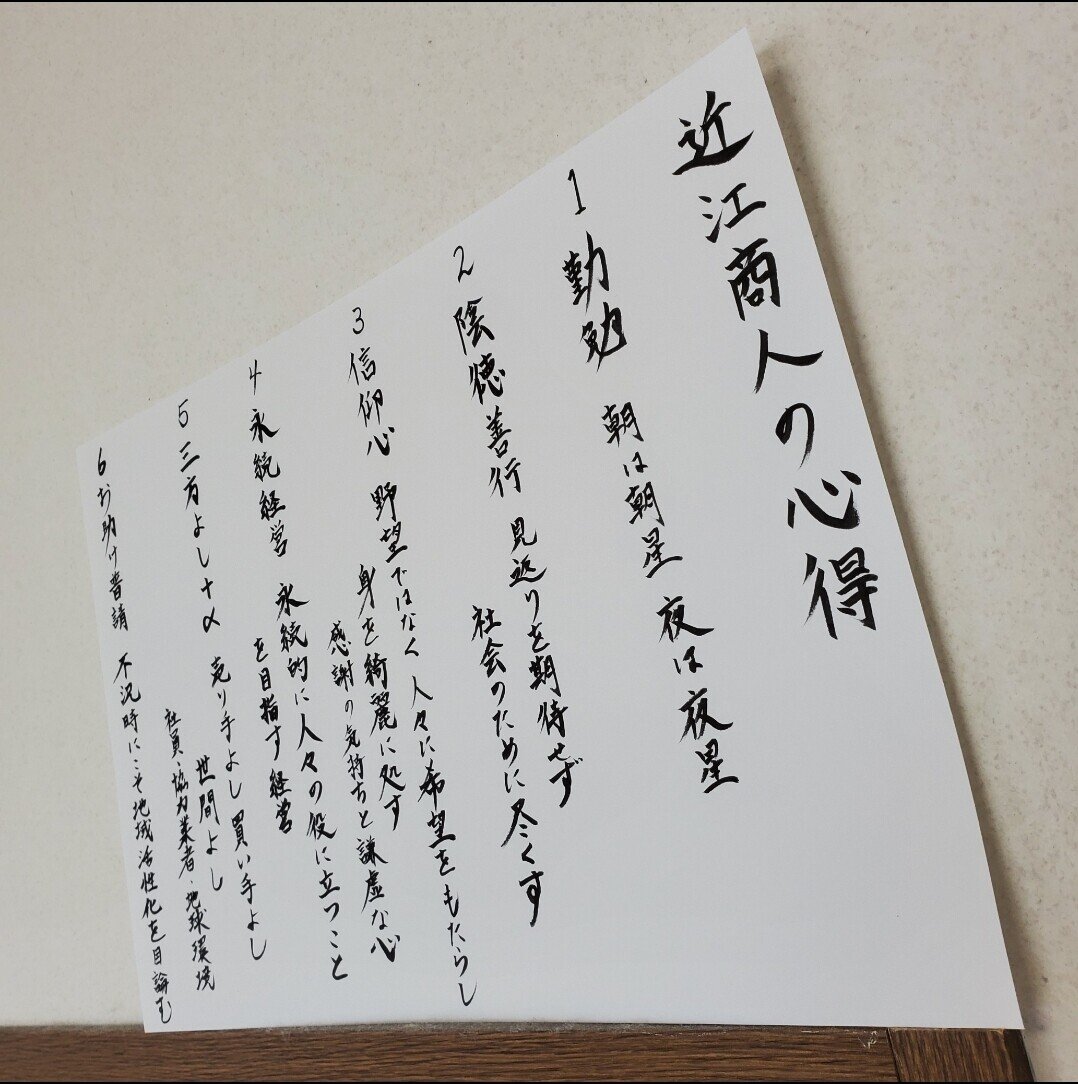 近江商人の心得
1 勤勉 朝は朝星 夜は夜星
2 陰徳善行 見返りを期待せず
社会のために尽くす
3 信仰心 野望ではなく人々に希望をもたらし
身を綺麗に処す
感謝の気持ちと謙虚な心
4 永続経営 永続的に人々の役に立つこと
を目指す経営
5 三方よし+α 売り手よし買い手よし
世間よし
社員・協力業者・地球環境
6 お助け普請 不況時にこそ地域活性化を目論む